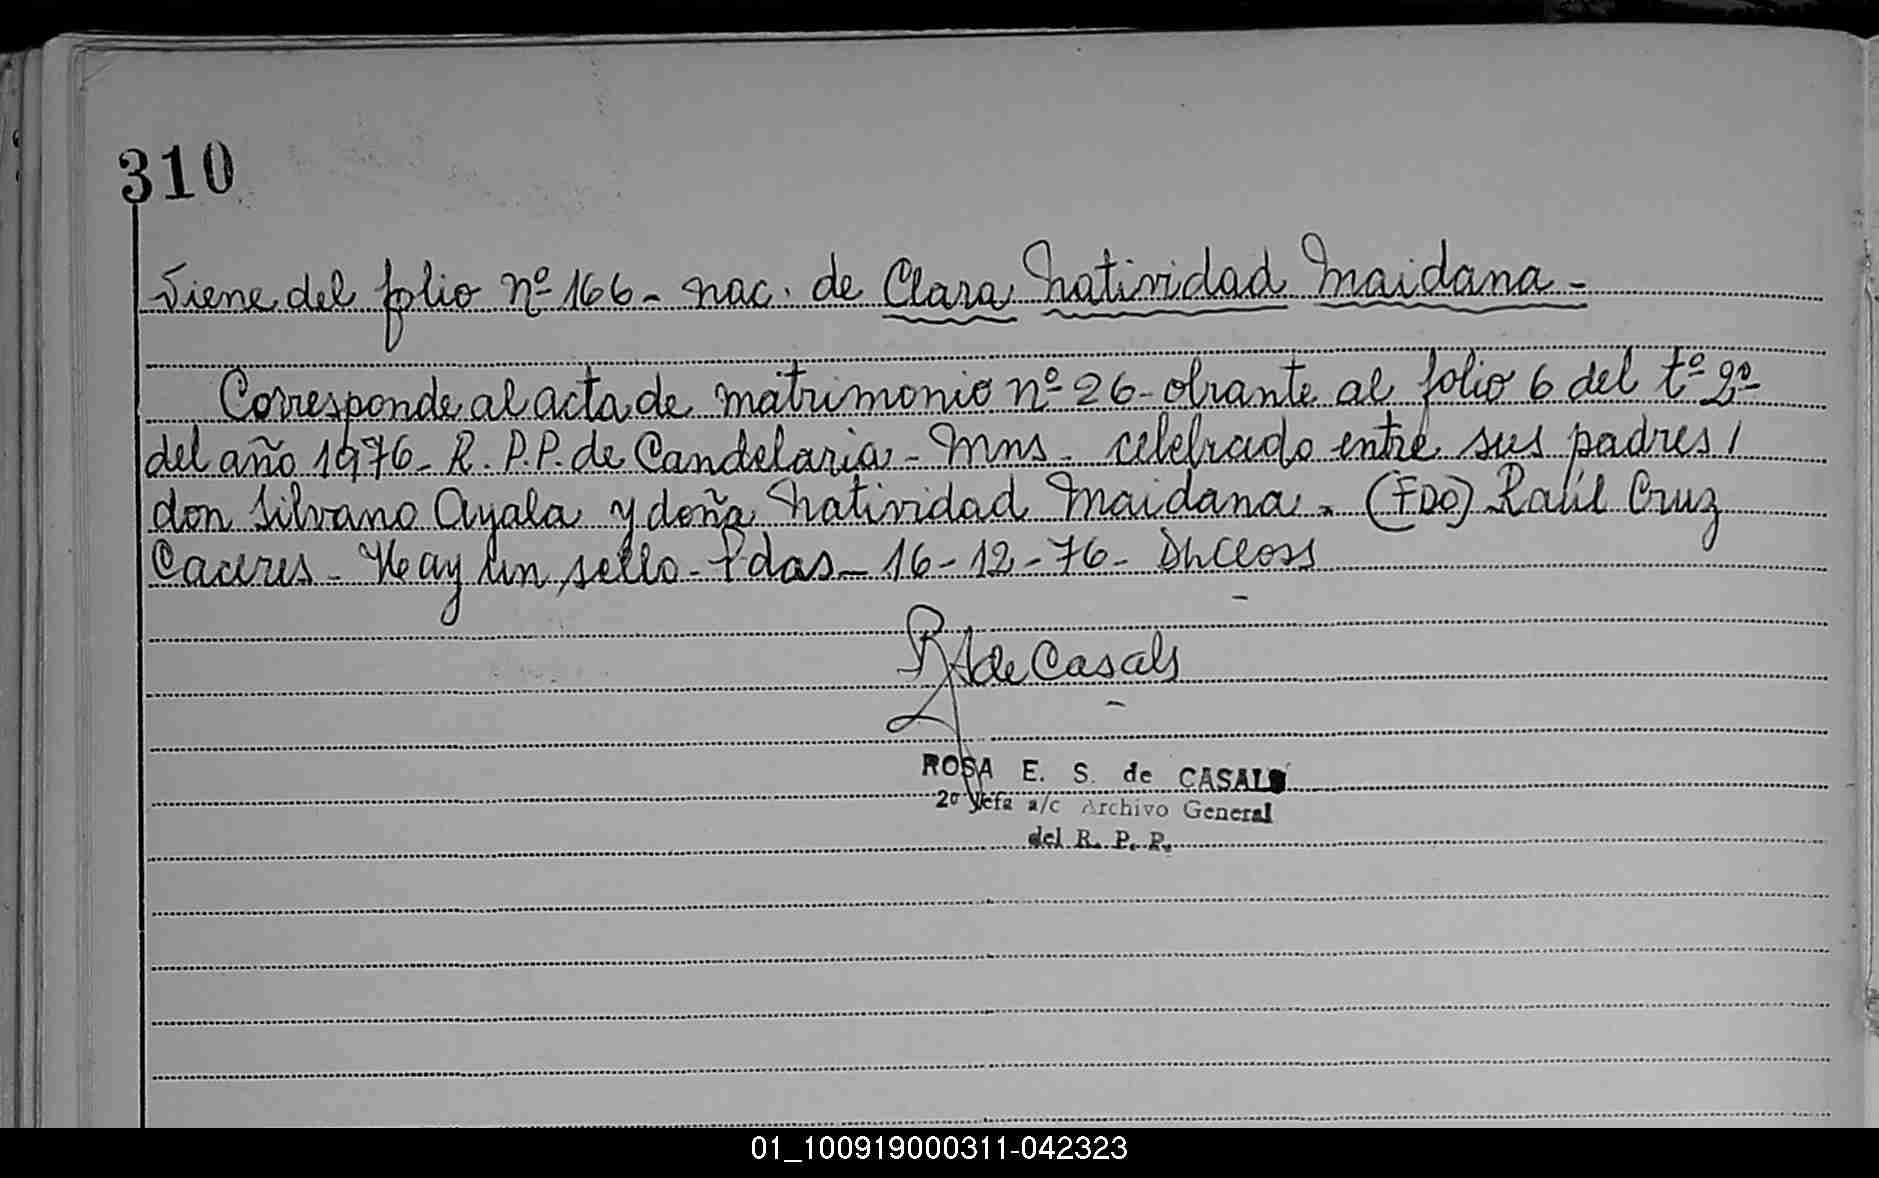 310
Viene del folio nº 166 - nac. de Clara Natividad Maidana -
Corresponde al acta de matrimonio nº 26 - obrante al folio 6 del tº 2º
del año 1976 - R. P.P. de Candelaria - Mns - celebrado entre sus padres /
don Silvano Ayala y doña Natividad Maidana. (FDO) Raúl Cruz
Caceres - Hay un sello - Pdas - 16-12-76 -
R de Casals
ROSA E. S. de CASALS
2º Jefa a/c Archivo General
del R. P. P.
01_100919000311-042323